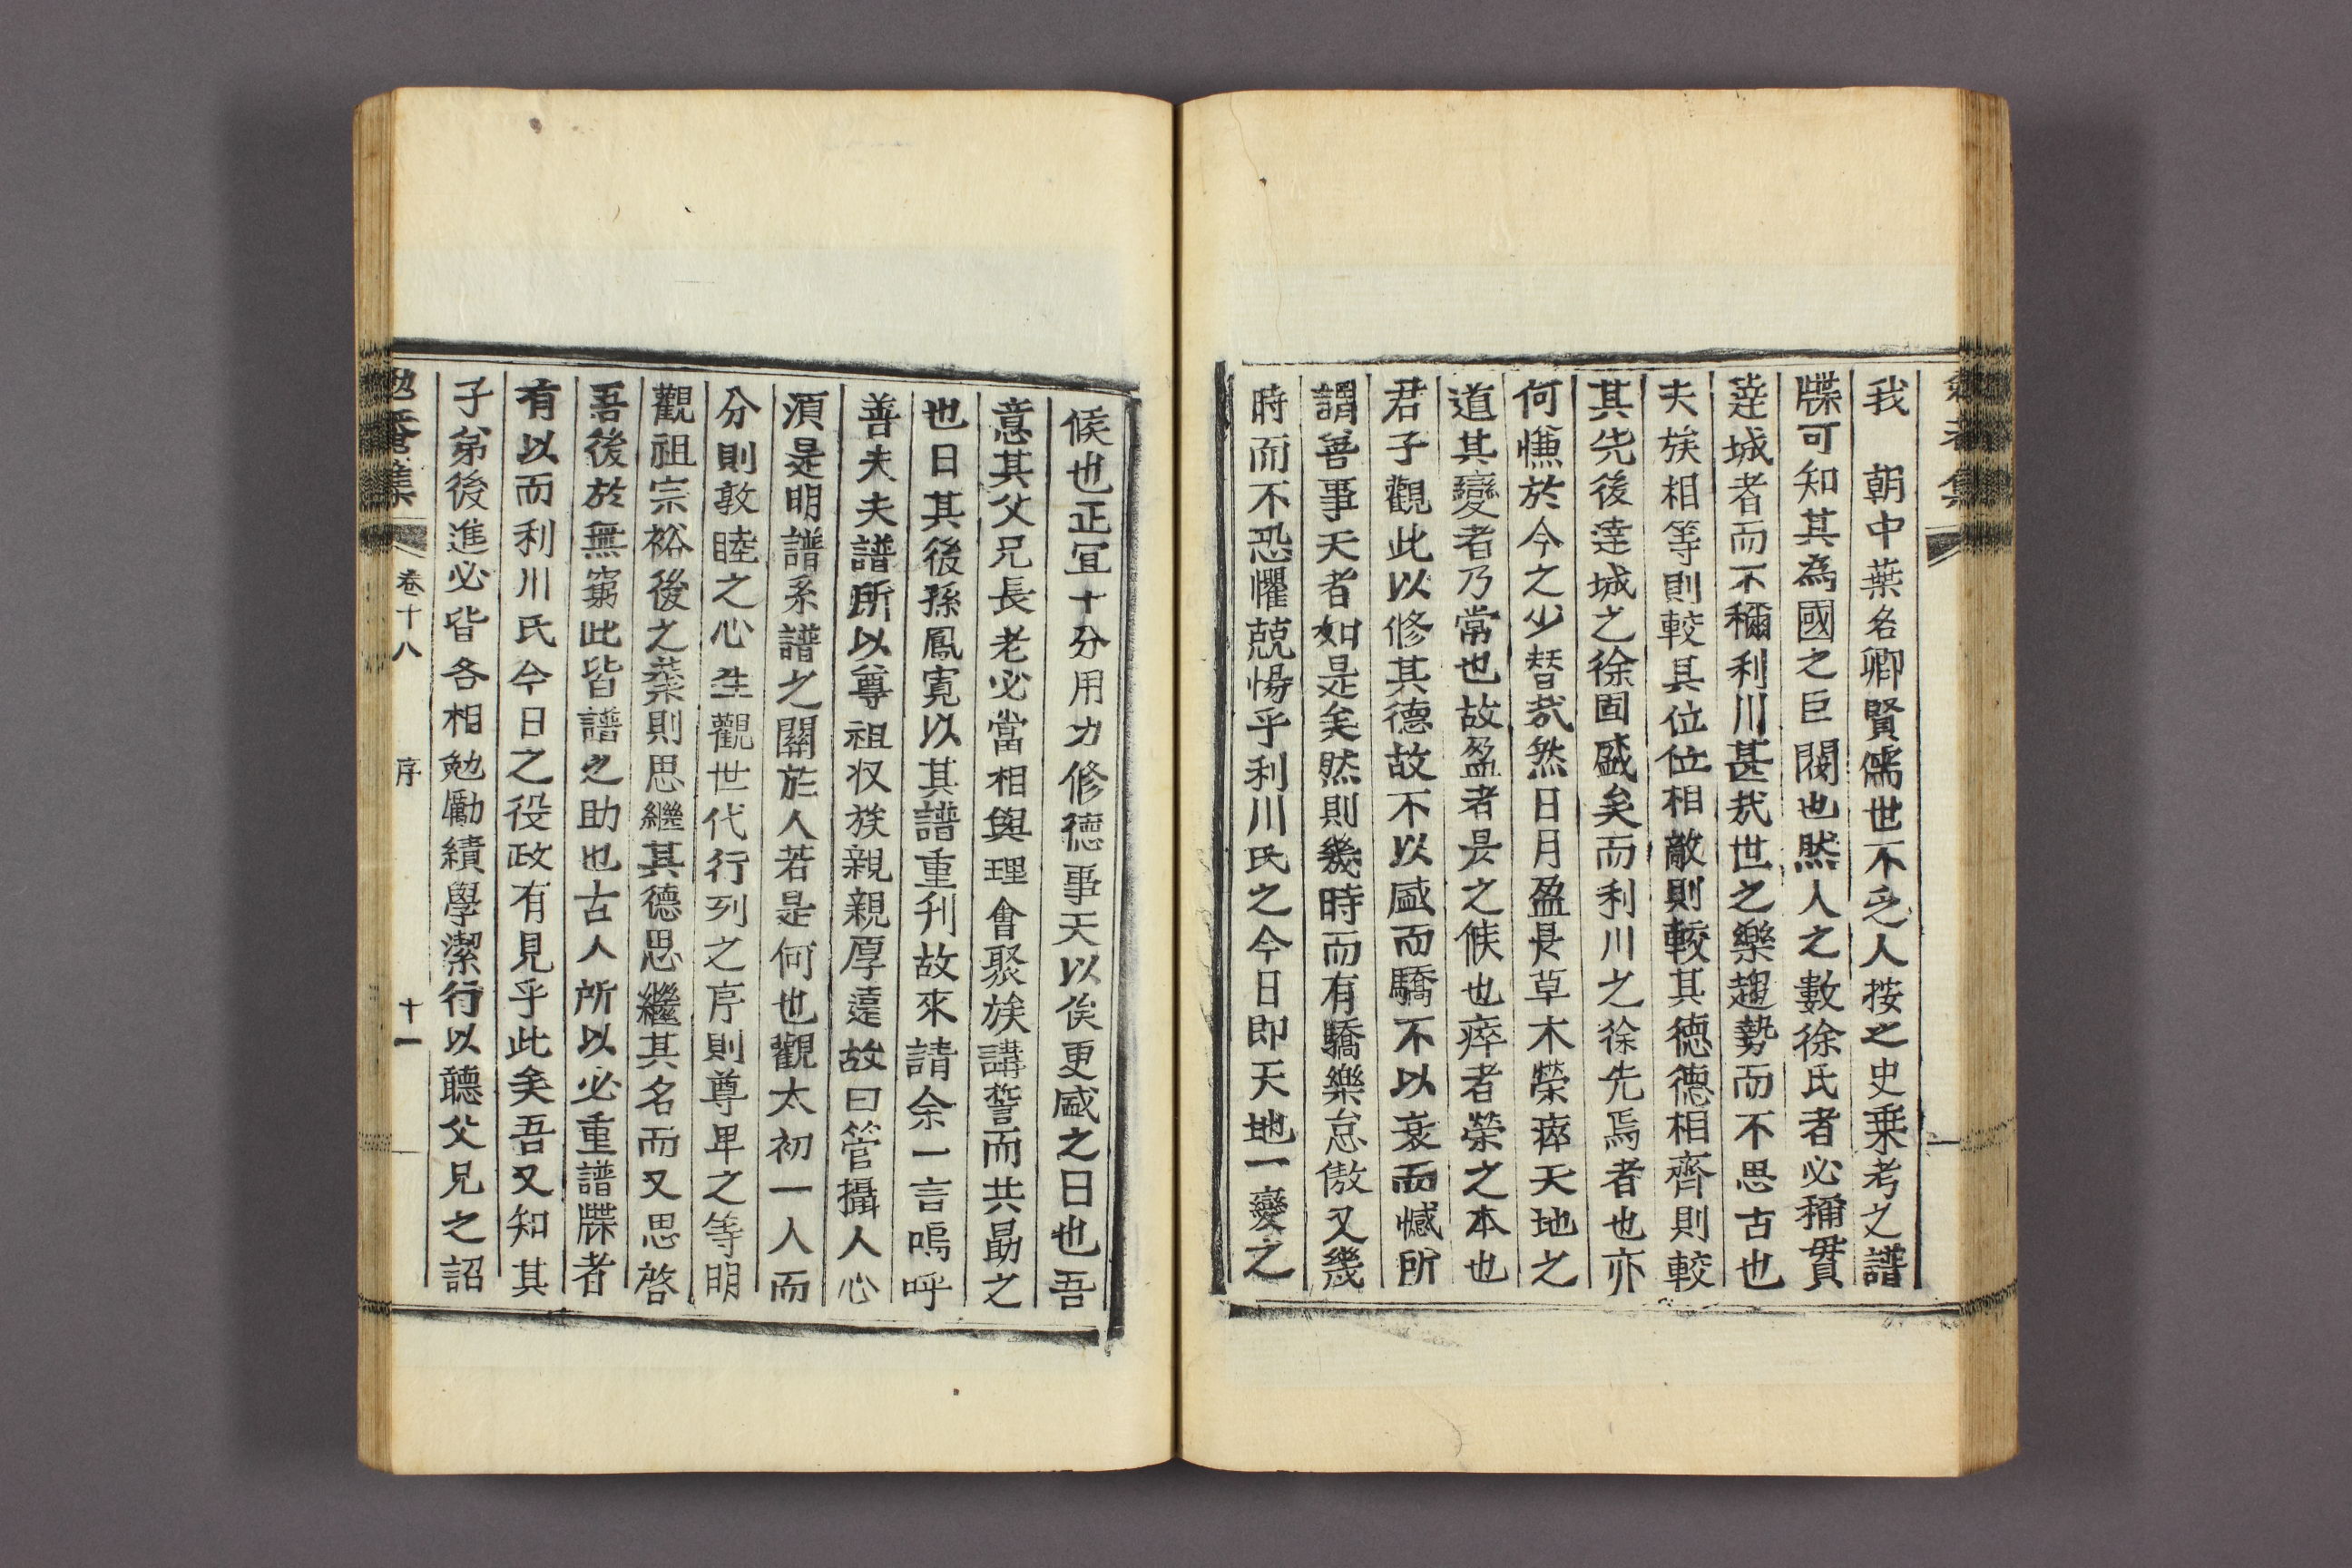 我 朝中葉名卿賢儒世不乏人按之史乘考之譜
牒可知其為國之巨閥也然人之數徐氏者必稱貫
達城者而不稱利川甚哉世之樂趨勢而不思古也
夫族相等則較其位位相敵則較其德德相齊則較
其先後達城之徐固盛矣而利川之徐先焉者也亦
何慊於今之少替哉然日月盈昃草木榮瘁天地之
道其變者乃常也故盈者昃之候也瘁者榮之本也
君子觀此以修其德故不以盛而驕不以衰而憾所
謂善事天者如是矣然則幾時而有驕樂怠傲又幾
時而不恐懼兢惕乎利川氏之今日即天地一變之
候也正宜十分用力修德事天以俟更盛之日也吾
意其父兄長老必當相與理會聚族講誓而共勗之
也日其後孫鳳寬以其譜重刊故來請余一言嗚呼
善夫夫譜所以尊祖收族親親厚遠故曰管攝人心
須是明譜系譜之關於人若是何也觀太初一人而
分則敦睦之心生觀世代行列之序則尊卑之等明
觀祖宗裕後之業則思繼其德思繼其名而又思啓
吾後於無窮此皆譜之助也古人所以必重譜牒者
有以而利川氏今日之役政有見乎此矣吾又知其
子弟後進必皆各相勉勵績學潔行以聽父兄之詔
勉菴集 卷十八 序 十一